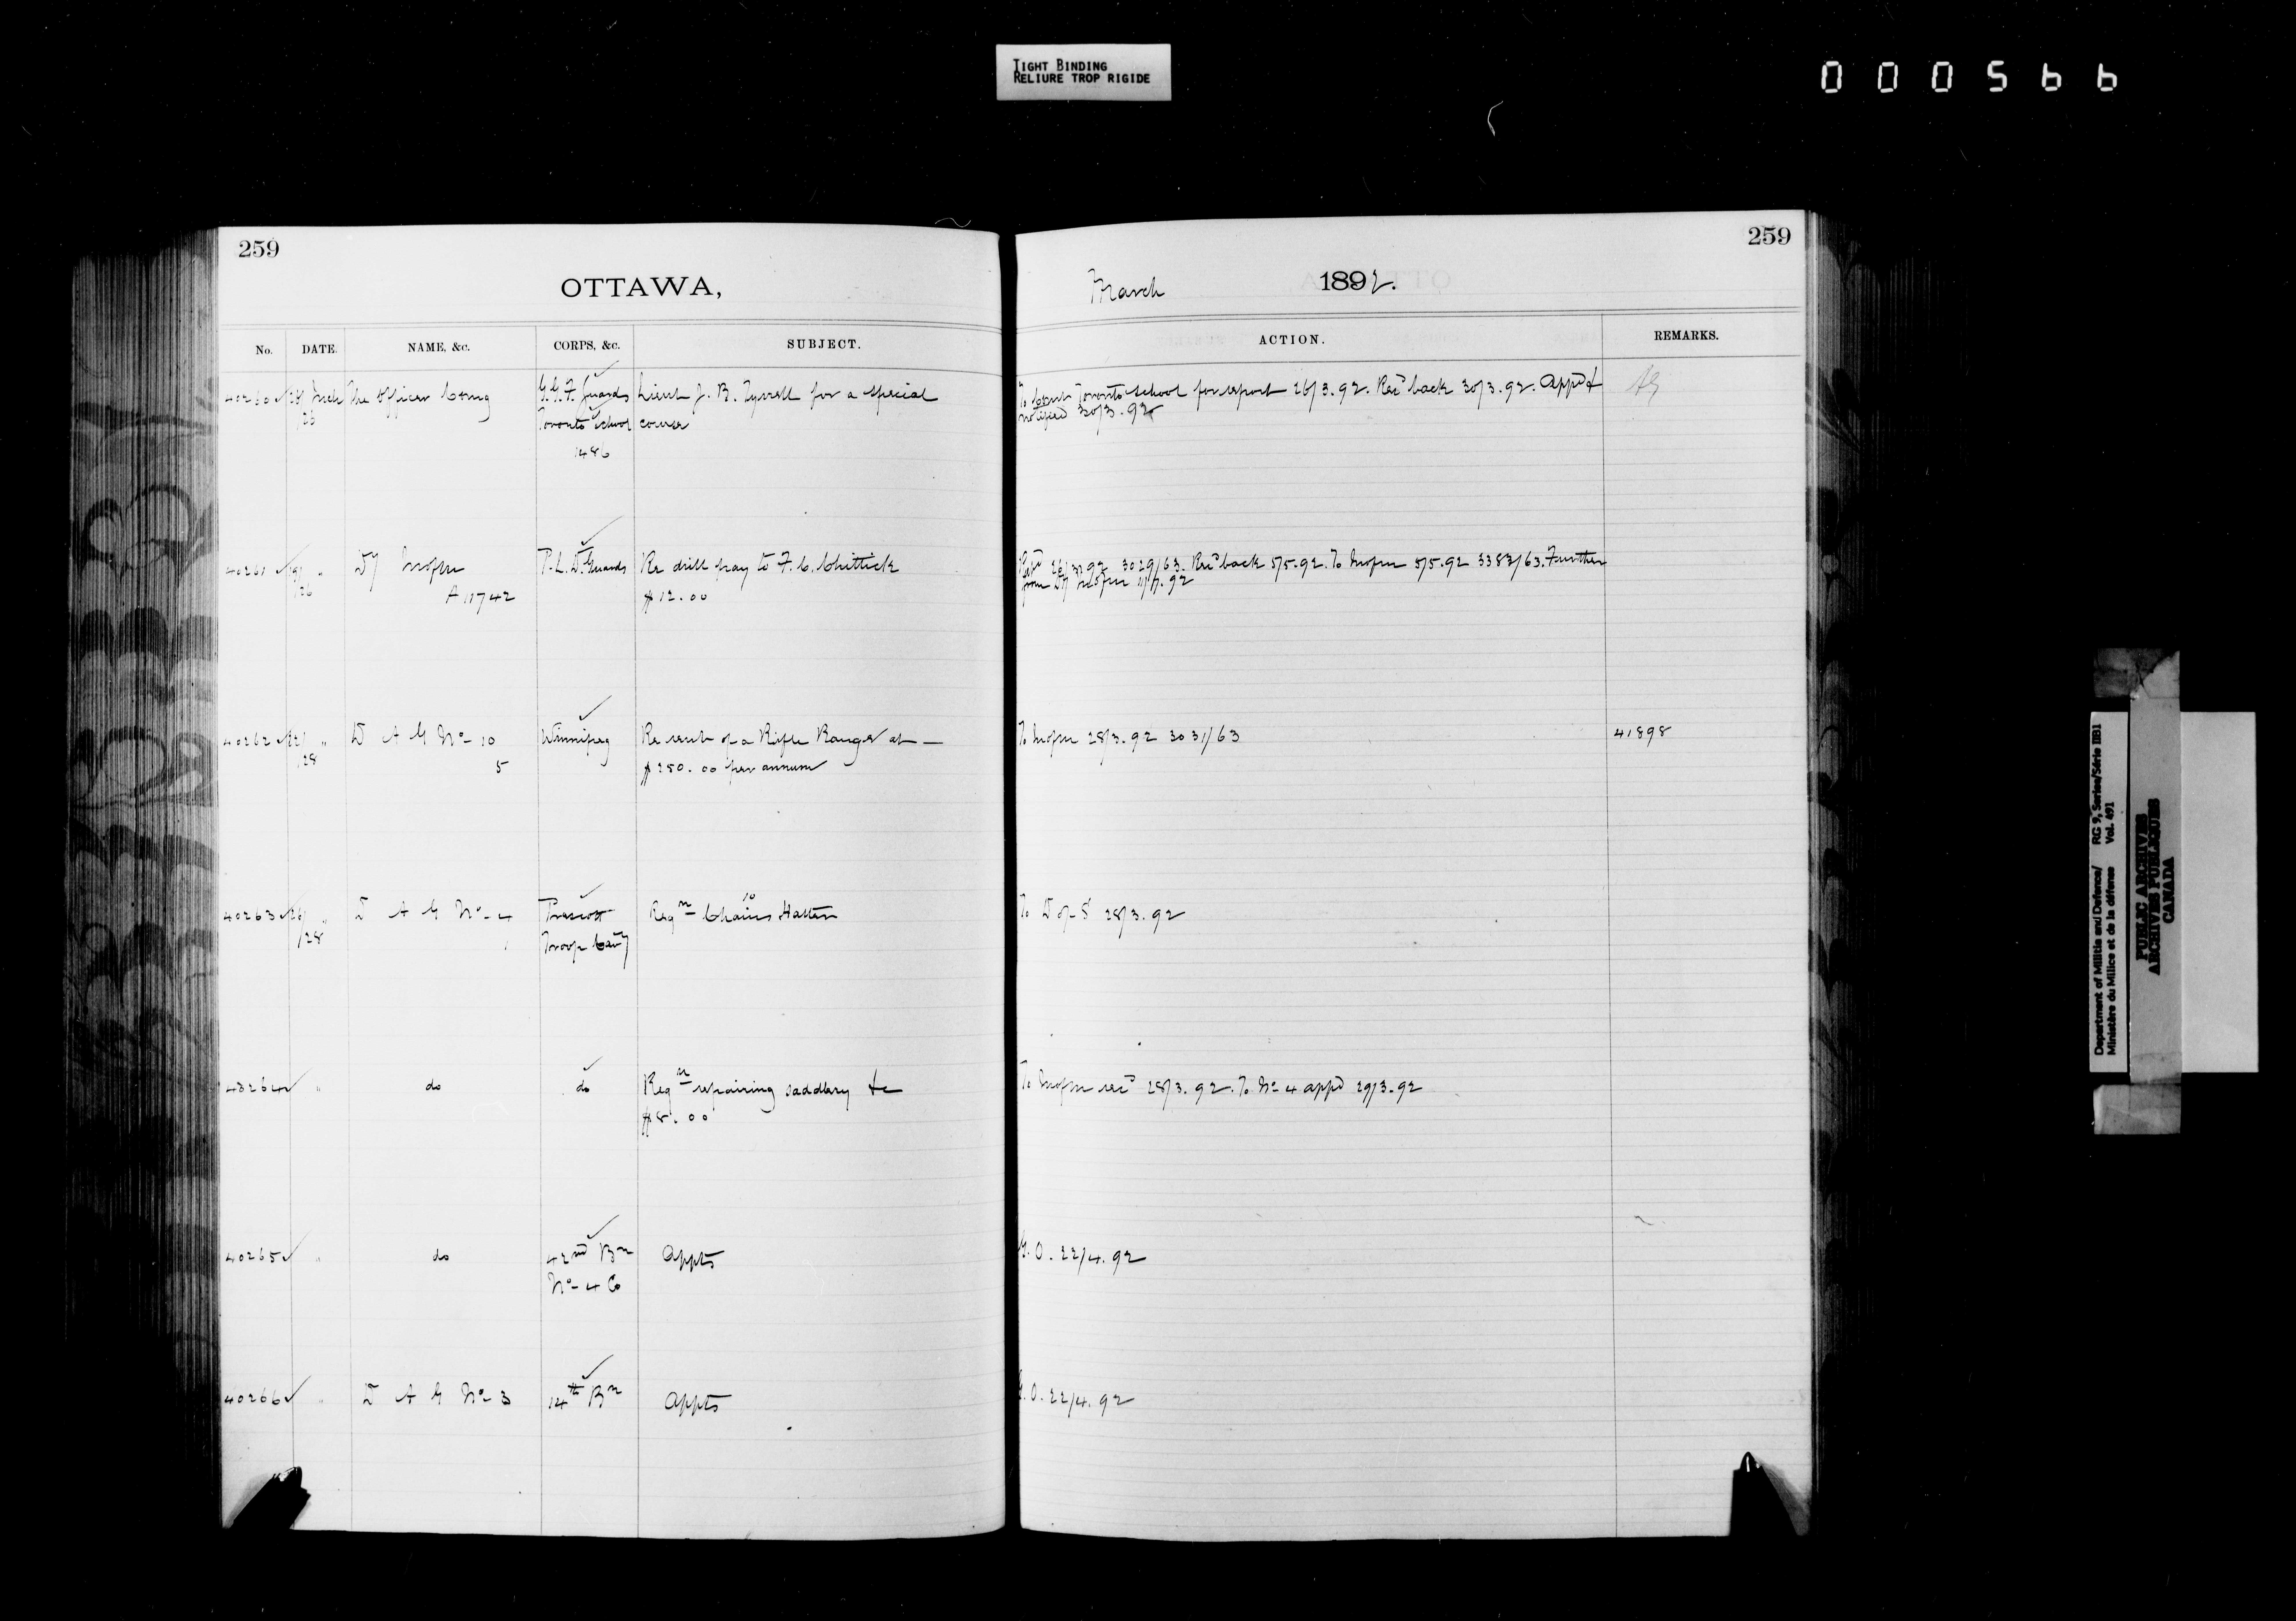 TIGHT BINDING
RELIURE TROP RIGIDE
000566
259
OTTAWA,
No. DATE. NAME, &c. CORPS, &c. SUBJECT.
40260 The Officer Comg G.G.F. Guards Lieut J. B. Tyrrell for a special
/26 Toronto School course
1486
40261 Dy P.L.D. Guards Re drill pay to F. C. Chittick
/26 A 11742 $12.00
40262 22/ " D A G No 10 Winnipeg Re rent of a Rifle Range at —
/28 5 $250.00 per annum
40263 26/ " D A G No 4 Prescott Reqn 10 Chains Halter
/28 1 Troop Cavy
40264 " do do Reqn repairing saddlery &c
$8.00
40265 " do 42nd Bn Appts
No 4 Co
40266 " D A G No 3 14th Bn Appts
259
March 1892.
ACTION. REMARKS.
To Comt Toronto School for report 26/3.92. Recd back 30/3.92. Appd &
notified 30/3.92
26/3.92 3029/63. Recd back 5/5.92. To 5/5.92 3383/63. Further
from Dy
To 28/3.92 3031/63 41898
To D of S 28/3.92
To 28/3.92. To No 4 appd 29/3.92
G.O. 22/4.92
G.O. 22/4.92
Department of Militia and Defence/ RG 9, Series/Série IIB1
Ministère du Milice et de la défense Vol. 491
PUBLIC ARCHIVES
ARCHIVES PUBLIQUES
CANADA